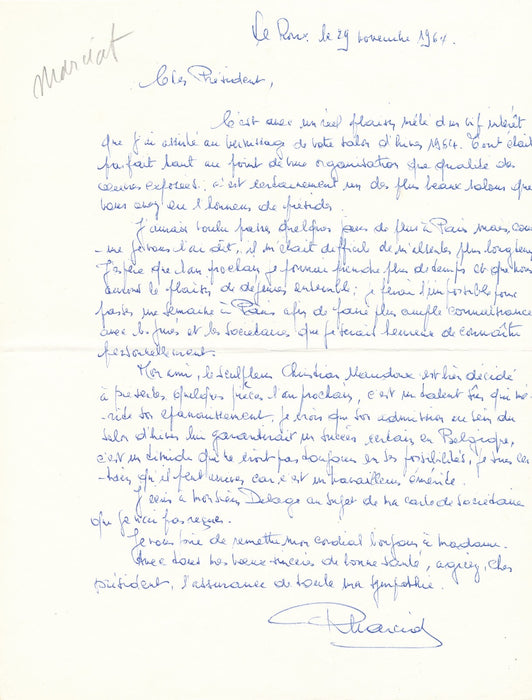 Le Roux, le 29 novembre 1964.
Marciat
Cher Président,
C'est avec un réel plaisir mêlé d'un vif intérêt
que j'ai assisté au vernissage de votre salon d'hiver 1964. Tout était
parfait tant au point de vue organisation que qualité des
œuvres exposées; c'est certainement un des plus beaux salons que
vous ayez eu l'honneur de présider.
J'aurais voulu passer quelques jours de plus à Paris mais, com
-me je vous l'ai dit, il m'était difficile de m'absenter plus longtemps.
J'espère que l'an prochain je pourrai prendre plus de temps et que nous
aurons le plaisir de déjeuner ensemble; je ferai l'impossible pour
passer une semaine à Paris afin de faire plus ample connaissance
avec les jurés et les sociétaires que je serais heureux de connaître
personnellement.
Mon ami, le sculpteur Christian est bien décidé
à présenter quelques pièces l'an prochain, c'est un talent sûr qui mé-
-rite son épanouissement, je crois que son admission au sein du
salon d'hiver lui garantirait un succès certain en Belgique,
c'est un timide qui ne croit pas toujours en ses possibilités, je suis cer-
-tain qu'il peut œuvrer car c'est un travailleur émérite.
J'écris à Monsieur Delage au sujet de ma carte de sociétaire
que je n'ai pas reçue.
Je vous prie de remettre mon cordial bonjour à Madame.
Avec tous mes vœux sincères de bonne santé, agréez, cher
président, l'assurance de toute ma sympathie.